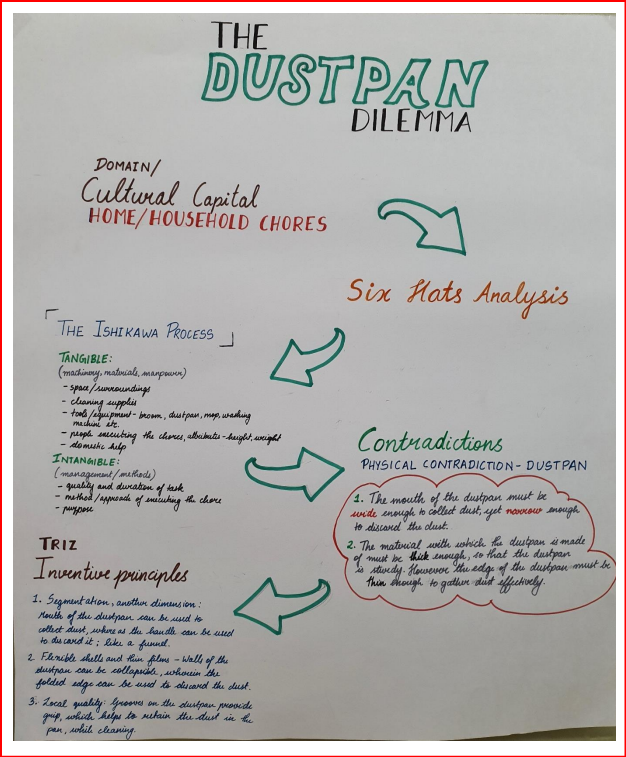 THE
DUSTPAN
DILEMMA
DOMAIN/
Cultural Capital
HOME/HOUSEHOLD CHORES
Six Hats Analysis
THE ISHIKAWA PROCESS
TANGIBLE:
(machinery, materials, manpower)
- space/surroundings
- cleaning supplies
- tools/equipment - broom, dustpan, mop, washing
machine etc.
- people executing the chores, attributes - height, weight
- domestic help
INTANGIBLE:
(management/methods)
- quality and duration of task
- method/approach of executing the chore
- purpose
Contradictions
PHYSICAL CONTRADICTION - DUSTPAN
1. The mouth of the dustpan must be
wide enough to collect dust, yet narrow enough
to discard the dust.
2. The material with which the dustpan is made
of must be thick enough, so that the dustpan
is sturdy. However the edge of the dustpan must be
thin enough to gather dust effectively.
TRIZ
Inventive principles
1. Segmentation, another dimension:
Mouth of the dustpan can be used to
collect dust, where as the handle can be used
to discard it; like a funnel.
2. Flexible shells and thin films - Walls of the
dustpan can be collapsible, wherein the
folded edge can be used to discard the dust.
3. Local quality: Grooves on the dustpan provide
grip, which helps to retain the dust in the
pan, while cleaning.